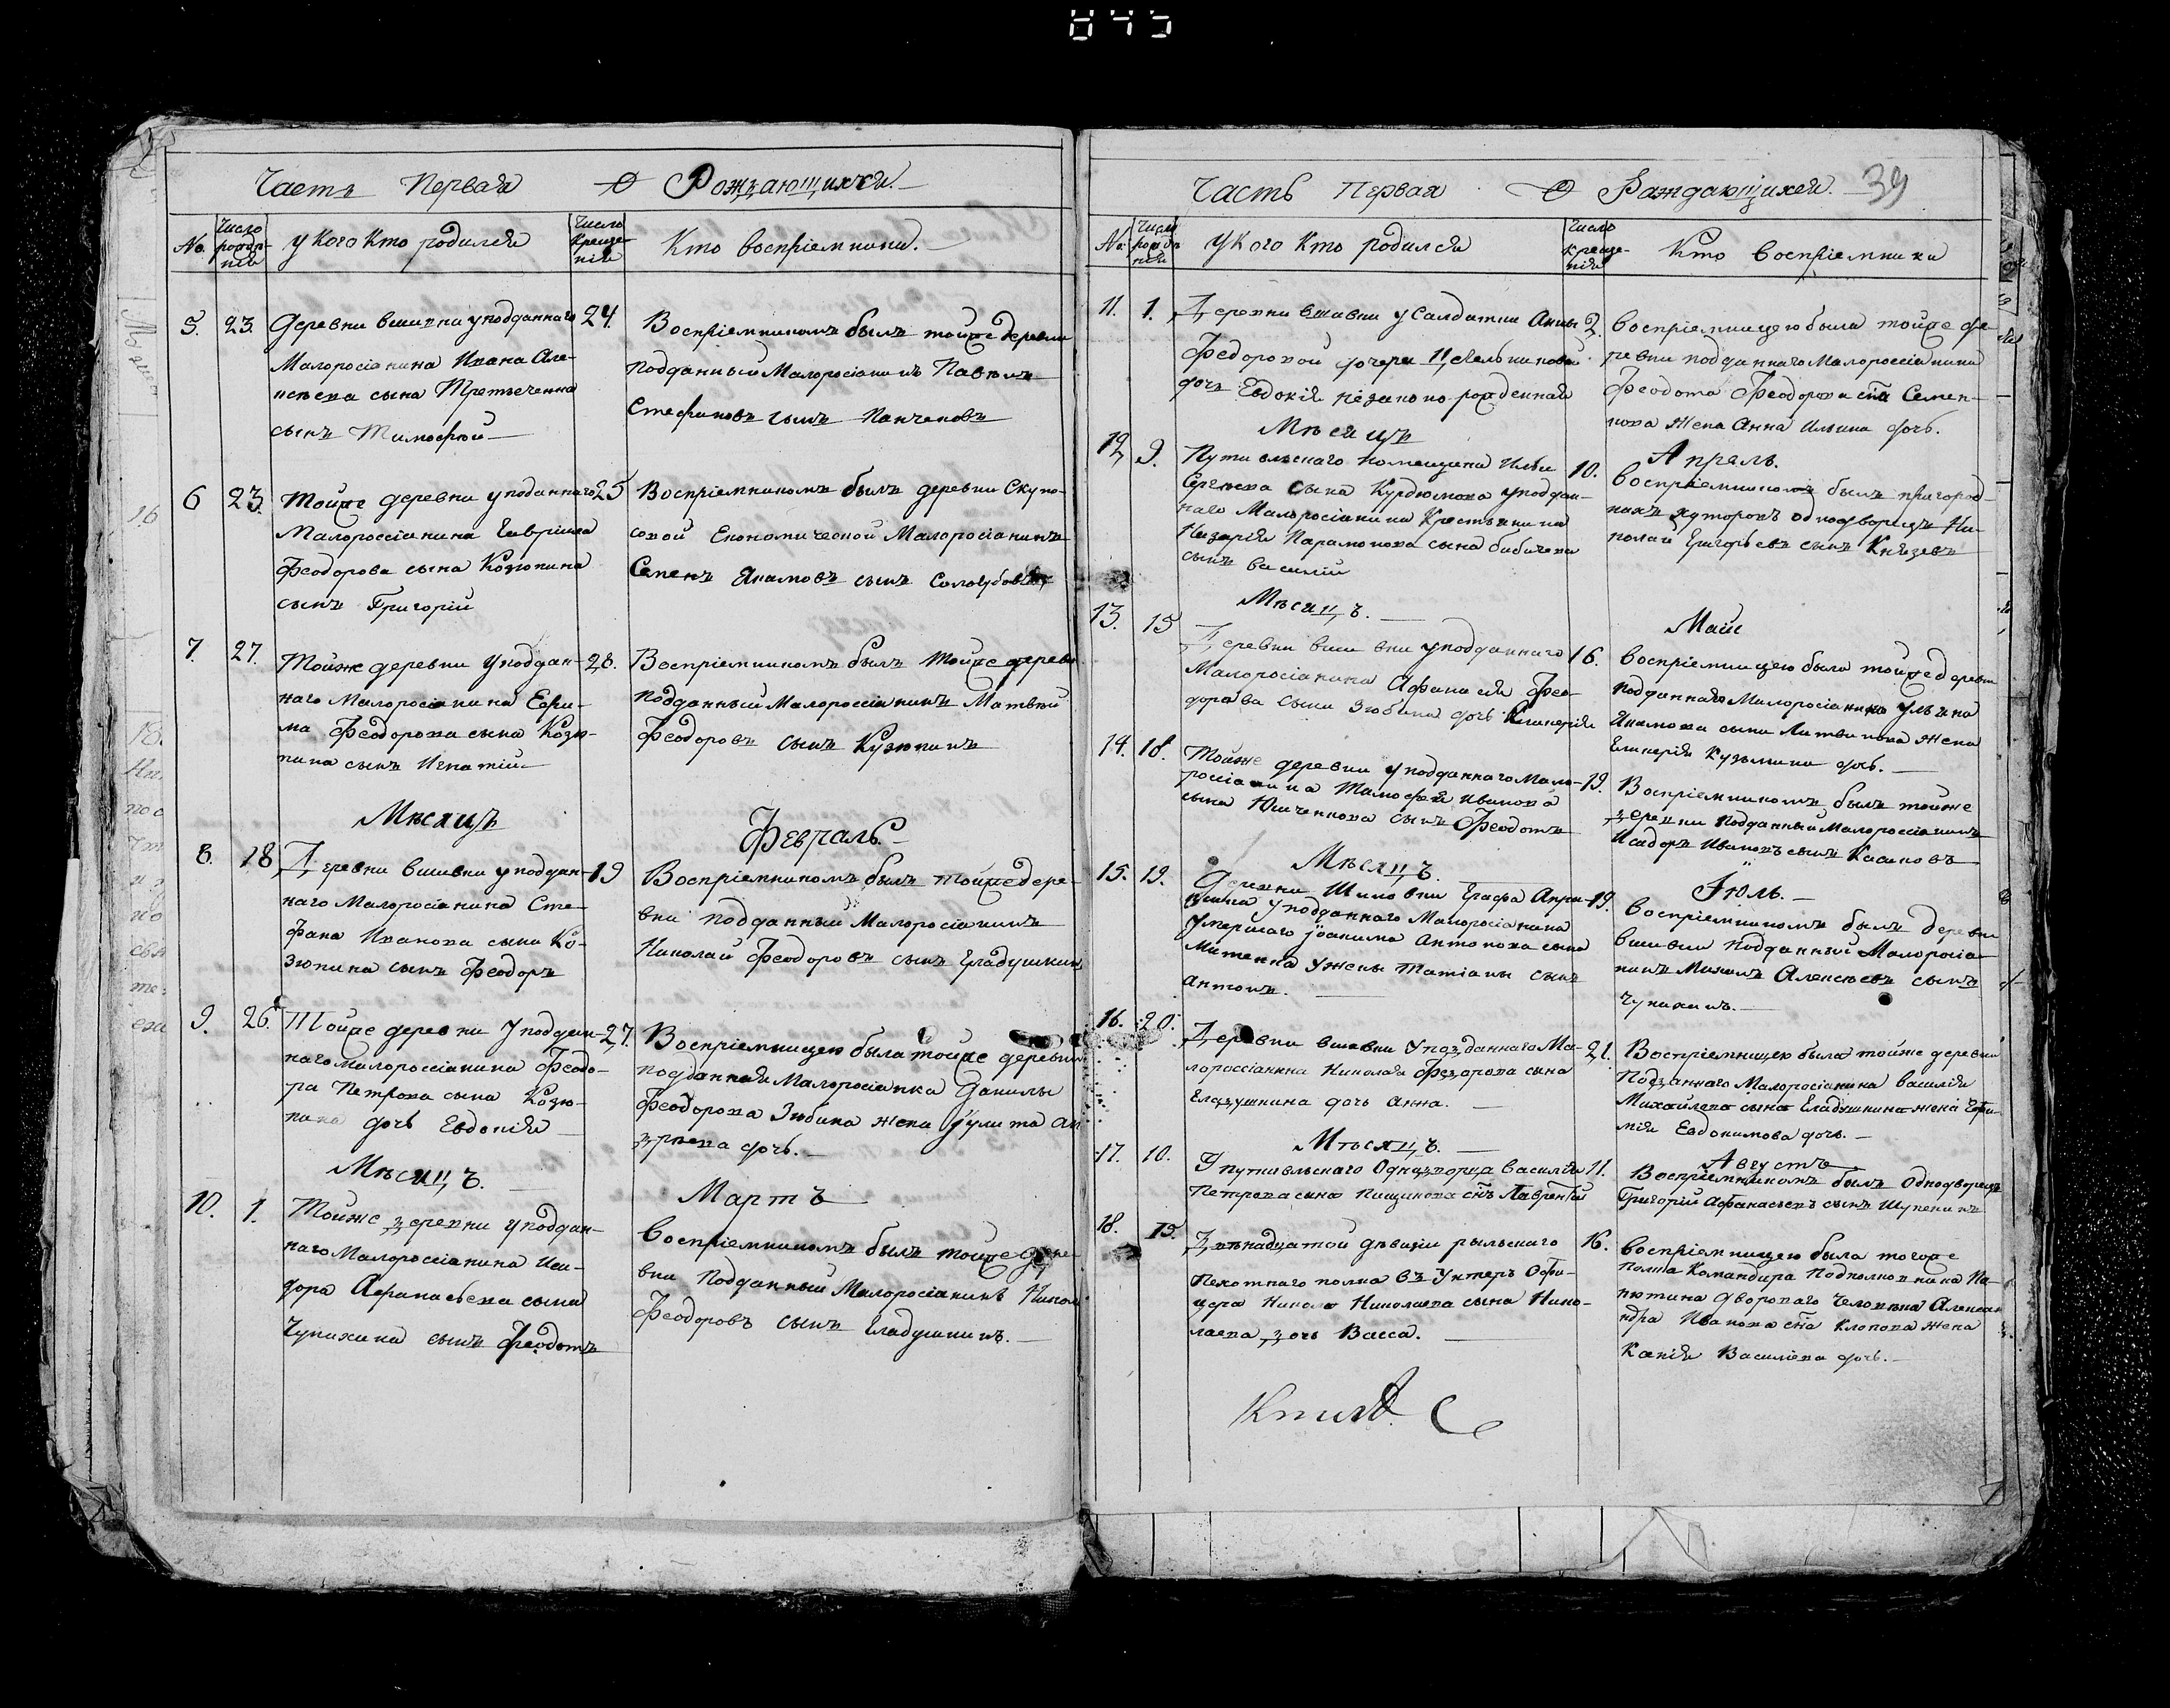 845
Часть Первая О Рождающихся.
No. Число рожде- нія у Кого Кто родился Число Креще- нія Кто воспріемники.
5. 23. Деревни вшивки уподданнаго
Малоросіянина Ивана Але-
ксѣева сына Третьеченка
сынъ Тимофей
24. Воспріемникомъ былъ тойже деревни
подданный Малоросіянинъ Павелъ
Стефановъ сынъ Панченковъ
6 23. Тойже деревни уподаннаго
Малороссіянина Гавріила
Феодорова сына Козюпина
сынъ Григорій
25 Воспріемникомъ былъ деревни
Економической Малоросіянинъ
Семенъ сынъ
7. 27. Тойже деревни уподдан-
наго Малоросіянина Ефи-
ма Феодорова сына Козю-
пина сынъ Игнатій
28. Воспріемникомъ былъ тойже деревни
подданный Малороссіянинъ Матвѣй
Феодоровъ сынъ
Мѣсяцъ Февраль.
8. 18 Деревни вшивки уподдан-
наго Малоросіянина Сте-
фана Иванова сына Ко-
зюпина сынъ Феодоръ
19 Воспріемникомъ былъ тойже дере-
вни подданный Малоросіянинъ
Николай Феодоровъ сынъ Гладушкинъ
9. 26. Тойже деревни уподдан-
наго малороссіянина Феодо-
ра Петрова сына Козю-
пина дочь Евдокія
27. Воспріемницею была тойже деревни
подданная Малоросіянка Данилы
Феодорова Зюбина жена Іулита Ан-
дреева дочь.
Мѣсяцъ. Мартъ
10. 1. Тойже деревни уподдан-
наго Малороссіянина Иси-
дора Афанасьева сына
Чупихина сынъ Феодотъ
Воспріемникомъ былъ тойже дере-
вни подданный Малоросіянинъ Никол
Феодоровъ сынъ Гладушкинъ.
Часть Первая О Раждающихся. 39
No. Число рожде- нія у Кого Кто родился Число креще- нія Кто воспріемники
11. 1. Деревни вшивки уСалдатки Анны
Федоровой дочери
дочь Евдокія незаконнорожденная
2. воспріемницею была тойже де-
ревни подданнаго Малороссіянина
Феодота Феодорова сна Семен-
кова жена Анна Ильина дочь.
Мѣсяцъ Апрель.
12 9. Путивльскаго помещика Ильи
Сергѣева сына Курдюмова уподдан-
наго Малоросіянина Крестьянина
Назарія Парамонова сына бибичева
сынъ василій
10. воспріемникомъ былъ пригород-
нихъ хуторовъ однодворецъ Ни-
колай Григорьевъ сынъ Князевъ
Мѣсяцъ. Май
13. 15 Деревни вшивки уподданнаго
Малоросіянина Афанасія Фео-
дорова сына Зюбина дочь Гликерія
16. воспріемницею была тойже деревни
подданнаго Малоросіянина Ульяна
сына Литвинова жена
Гликерія Кузьмина дочь.
14. 18. Тойже деревни уподданнаго Мало-
россіянина Тимофея иванова
сына Ющенкова сынъ Феодотъ
19. Воспріемникомъ былъ тойже
деревни подданный Малороссіянинъ
Исидоръ Ивановъ сынъ Касановъ
Мѣсяцъ. Іюль.
15. 19. Деревни Шиловки Графа Апра-
ксина уподданнаго Малоросіянина
умершаго іоакима Антонова сына
Митенка ужены Татіаны сынъ
Антонъ.
19. воспріемникомъ былъ деревни
вшивки подданный Малоросія-
нинъ Алексѣевъ сынъ
Чупихинъ.
16. 20. Деревни вшивки уподданнаго Ма-
лороссіянина Николая Федорова сына
Гладушкина дочь Анна.
21. Воспріемницею была тойже деревни
Подданнаго Малоросіянина василія
Михайлова сына Гладушкина жена Ефи-
мія Евдокимова дочь.
Мѣсяцъ. Августъ
17. 10. У путивльскаго Однодворца василія
Петрова сына Пищикова снъ Лаврентій
11. Воспріемникомъ былъ Однодворецъ
Григорій Афанасьевъ сынъ
18. 15. Двѣнадцатой дѣвизіи рыльскаго
пехотнаго полка въ Унтеръ Офи-
цера Никола Николаева сына Нико-
лаева дочь Васса.
16. воспріемницею была тогоже
полка Командира Подполковника Па-
нютина дворового человека Алексан
ндра Иванова сна Клопова жена
Ксенія Василіева дочь.